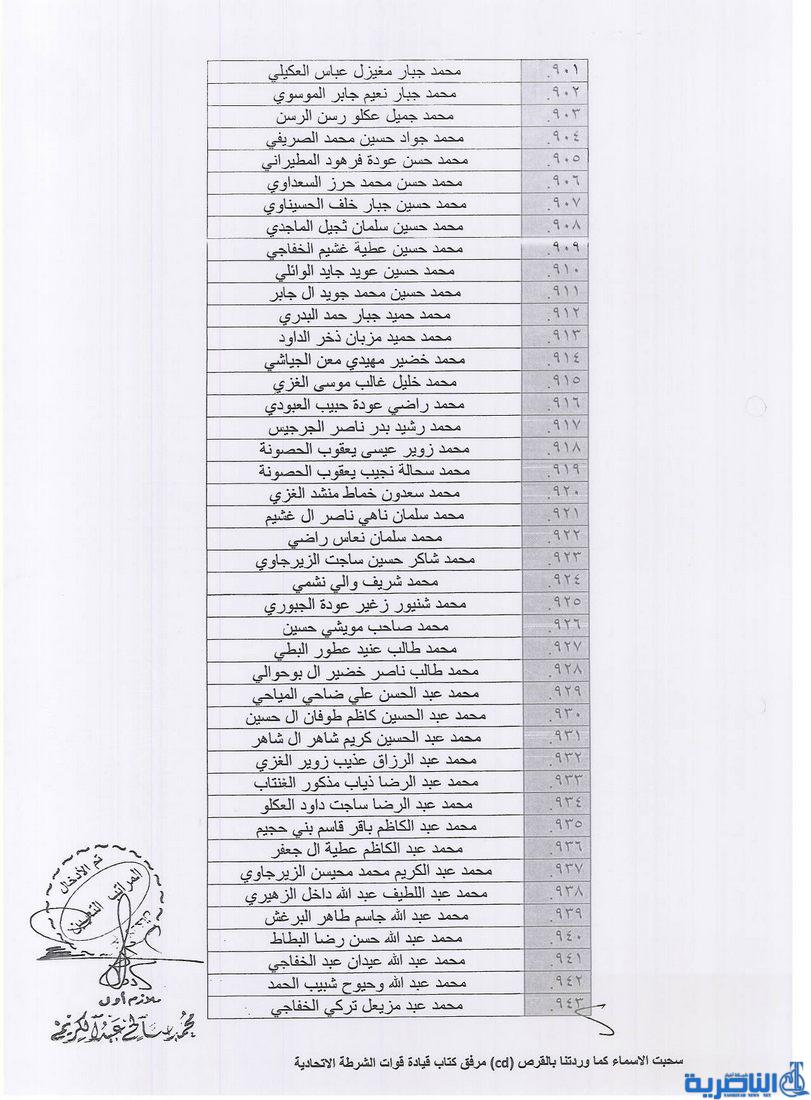 ٩٠١. محمد جبار مغيزل عباس العكيلي
٩٠٢. محمد جبار نعيم جابر الموسوي
٩٠٣. محمد جميل عكلو رسن الرسن
٩٠٤. محمد جواد حسين محمد الصريفي
٩٠٥. محمد حسن عودة فرهود المطيراني
٩٠٦. محمد حسن محمد حرز السعداوي
٩٠٧. محمد حسين جبار خلف الحسيناوي
٩٠٨. محمد حسين سلمان ثجيل الماجدي
٩٠٩. محمد حسين عطية غشيم الخفاجي
٩١٠. محمد حسين عويد جايد الوائلي
٩١١. محمد حسين محمد جويد ال جابر
٩١٢. محمد حميد جبار حمد البدري
٩١٣. محمد حميد مزبان ذخر الداود
٩١٤. محمد خضير مهيدي معن الجياشي
٩١٥. محمد خليل غالب موسى الغزي
٩١٦. محمد راضي عودة حبيب العبودي
٩١٧. محمد رشيد بدر ناصر الجرجيس
٩١٨. محمد زوير عيسى يعقوب الحصونة
٩١٩. محمد سحالة نجيب يعقوب الحصونة
٩٢٠. محمد سعدون خماط منشد الغزي
٩٢١. محمد سلمان ناهي ناصر ال غشيم
٩٢٢. محمد سلمان نعاس راضي
٩٢٣. محمد شاكر حسين ساجت الزيرجاوي
٩٢٤. محمد شريف والي نشمي
٩٢٥. محمد شنيور زغير عودة الجبوري
٩٢٦. محمد صاحب مويشي حسين
٩٢٧. محمد طالب عنيد عطور البطي
٩٢٨. محمد طالب ناصر خضير ال بوحوالي
٩٢٩. محمد عبد الحسن علي ضاحي المياحي
٩٣٠. محمد عبد الحسين كاظم طوفان ال حسين
٩٣١. محمد عبد الحسين كريم شاهر ال شاهر
٩٣٢. محمد عبد الرزاق عذيب زوير الغزي
٩٣٣. محمد عبد الرضا ذياب مذكور الغنتاب
٩٣٤. محمد عبد الرضا ساجت داود العكلو
٩٣٥. محمد عبد الكاظم باقر قاسم بني حجيم
٩٣٦. محمد عبد الكاظم عطية ال جعفر
٩٣٧. محمد عبد الكريم محمد محيسن الزيرجاوي
٩٣٨. محمد عبد اللطيف عبد الله داخل الزهيري
٩٣٩. محمد عبد الله جاسم طاهر البرغش
٩٤٠. محمد عبد الله حسن رضا البطاط
٩٤١. محمد عبد الله عيدان عبد الخفاجي
٩٤٢. محمد عبد الله وحيوح شبيب الحمد
٩٤٣. محمد عبد مزيعل تركي الخفاجي
تم الأدخال
ملازم أول
محمد صالح عبد الكريم
سحبت الاسماء كما وردتنا بالقرص (cd) مرفق كتاب قيادة قوات الشرطة الاتحادية
شبكة أخبار
الناصرية
NASIRIYAH NEWS NET